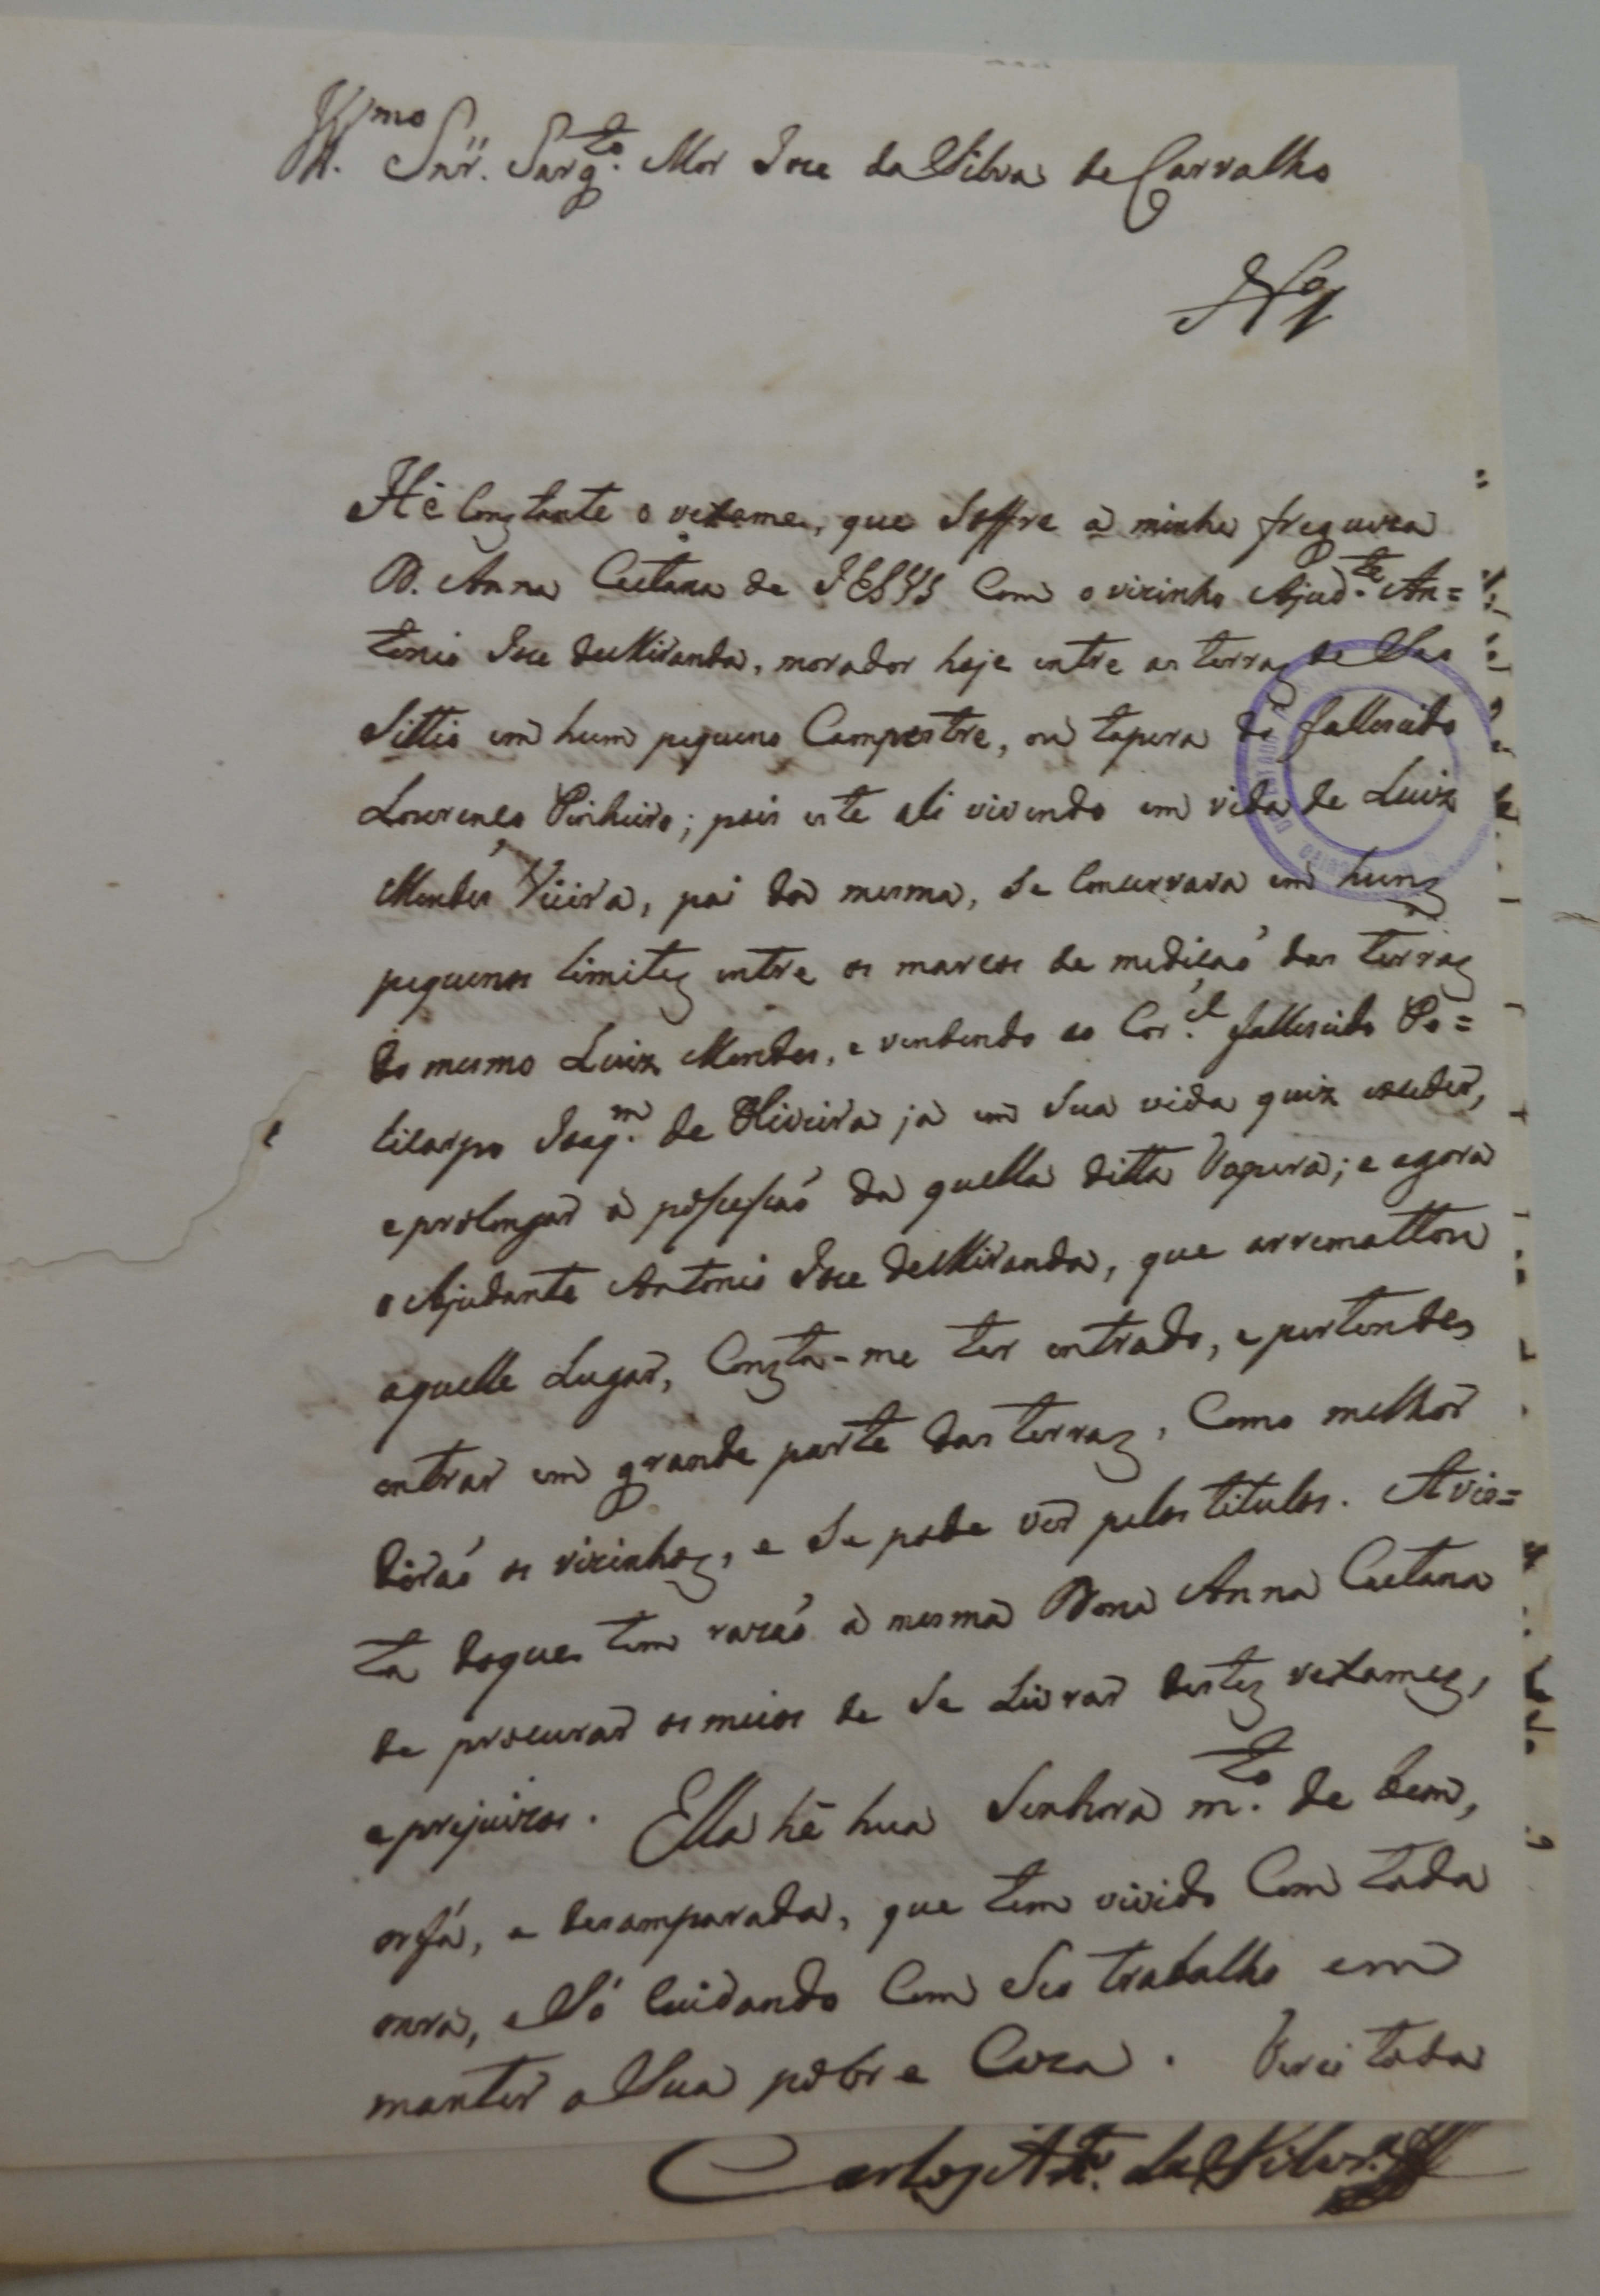 Ill.mo Snr. Sarg.to Mor Joze da Silva de Carvalho
Hé Constante o vexame, que Soffre a minha fregueza
D. Anna Caetana de JESUS Com o vizinho Ajud.te An=
tonio Joze de Miranda, morador hoje entre as terras de Seo
Sittio em hum pequeno Campestre, ou tapera do fallescido
Lourenço Pinheiro; pois este ali vivendo em vida de Luiz
Mendes Vieira, pai da mesma, Se Concervava em huns
pequenos limites entre os marcos de mediçaó das terras
do mesmo Luiz Mendes, e vendendo ao Cor.el fallescido Po=
licarpo Joaq.m de Oliveira ja em Sua vida quiz exceder,
e prolongar a possessaó da quella ditta Tapera; e agora
o Ajudante Antonio Joze de Miranda, que arremattou
aquelle Lugar, Consta-me ter entrado, e pertender
entrar em grande parte das terras, Como melhor
diraó os vizinhos, e Se pode ver pelos titulos. A vis=
ta doque tem razaó a mesma Dona Anna Caetana
de procurar os meios de Se Livrar destes vexames,
e prejuizos. Ella hé hua Senhora m.to de bem,
orfá, e desamparada, que tem vivido Com toda
onra, e Só Cuidando Com Seo trabalho em
manter a Sua pobre Caza. Terei toda
Carlos Ant.o da Silva